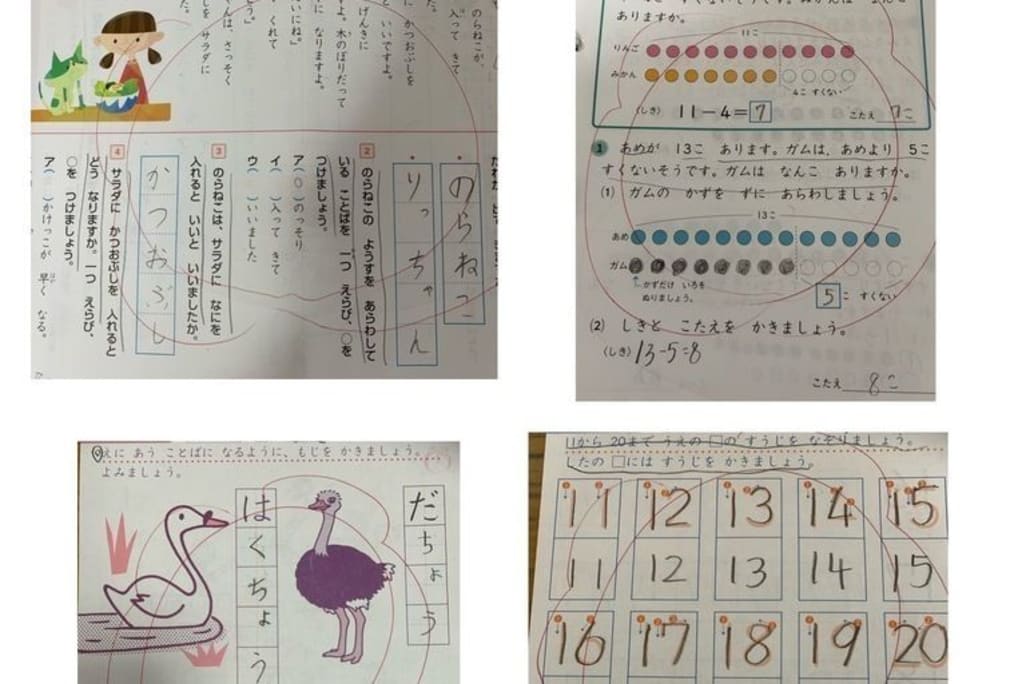 のらねこが、
入って きて
かつおぶしを
いいですよ。
げんきに
なりますよ。
木のぼりだって
いにね。」
くれて
は、さっそく
サラダに
のらねこ
りっちゃん
2 のらねこの ようすを あらわして
いる ことばを 一つ えらび、○を
つけましょう。
ア(○)のっそり
イ( )入って きて
ウ( )いいました
3 のらねこは、サラダに なにを
入れると いいと いいましたか。
かつおぶし
4 サラダに かつおぶしを 入れると
どう なりますか。一つ えらび、
○を つけましょう。
ア( )かけっこが 早く なる。
ありますか。
11こ
りんご
みかん
4こ すくない
(しき) 11-4=7
こたえ 7こ
1 あめが 13こ あります。ガムは、あめより 5こ
すくないそうです。ガムは なんこ ありますか。
(1) ガムの かずを ずに あらわしましょう。
13こ
あめ
ガム
かずだけ いろを
ぬりましょう。
5こ すくない
(2) しきと こたえを かきましょう。
(しき) 13-5=8
こたえ 8こ
えに あう ことばに なるように、もじを かきましょう。
よみましょう。
だちょう
はくちょう
11から 20まで うえの □の すうじを なぞりましょう。
したの □には すうじを かきましょう。
11 12 13 14 15
11 12 13 14 15
16 17 18 19 20